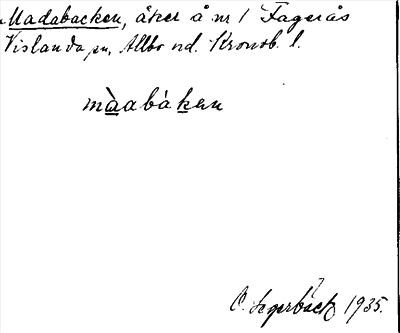 Madabacken, åker å nr 1 Fagerås
Vislanda sn, Allbo hd. Kronob. l.
màabàkan
O. Lagerbäck 1935.